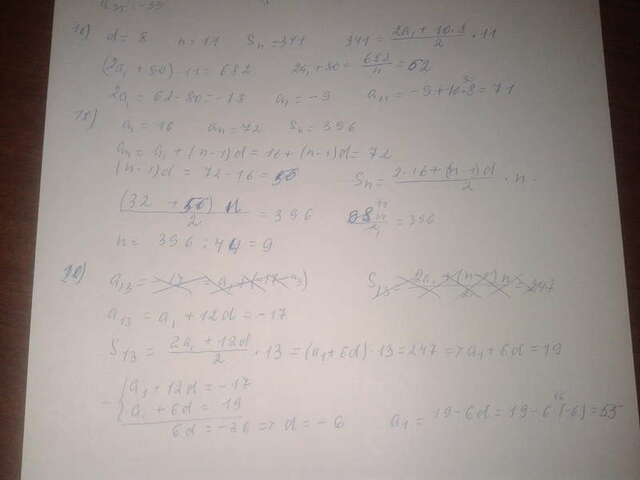 d = 8 n = 11 Sn = 341 341 = (2a₁ + 10·8)/2 · 11
(2a₁ + 80) · 11 = 682 2a₁ + 80 = 682/11 = 62
2a₁ = 62 - 80 = -18 a₁ = -9 a₁₁ = -9 + 10·8 = 71
a₁ = 16 an = 72 Sn = 396
an = a₁ + (n-1)d = 16 + (n-1)d = 72
(n-1)d = 72 - 16 = 56 Sn = (2·16 + (n-1)d)/2 · n
(32 + 56) n/2 = 396 88n/2 = 396
n = 396 : 44 = 9
20)
a₁₃ = a₁ + 12d = -17
S₁₃ = (2a₁ + 12d)/2 · 13 = (a₁ + 6d) · 13 = 247 => a₁ + 6d = 19
- { a₁ + 12d = -17
a₁ + 6d = 19
6d = -36 => d = -6 a₁ = 19 - 6d = 19 - 6·(-6) = 55